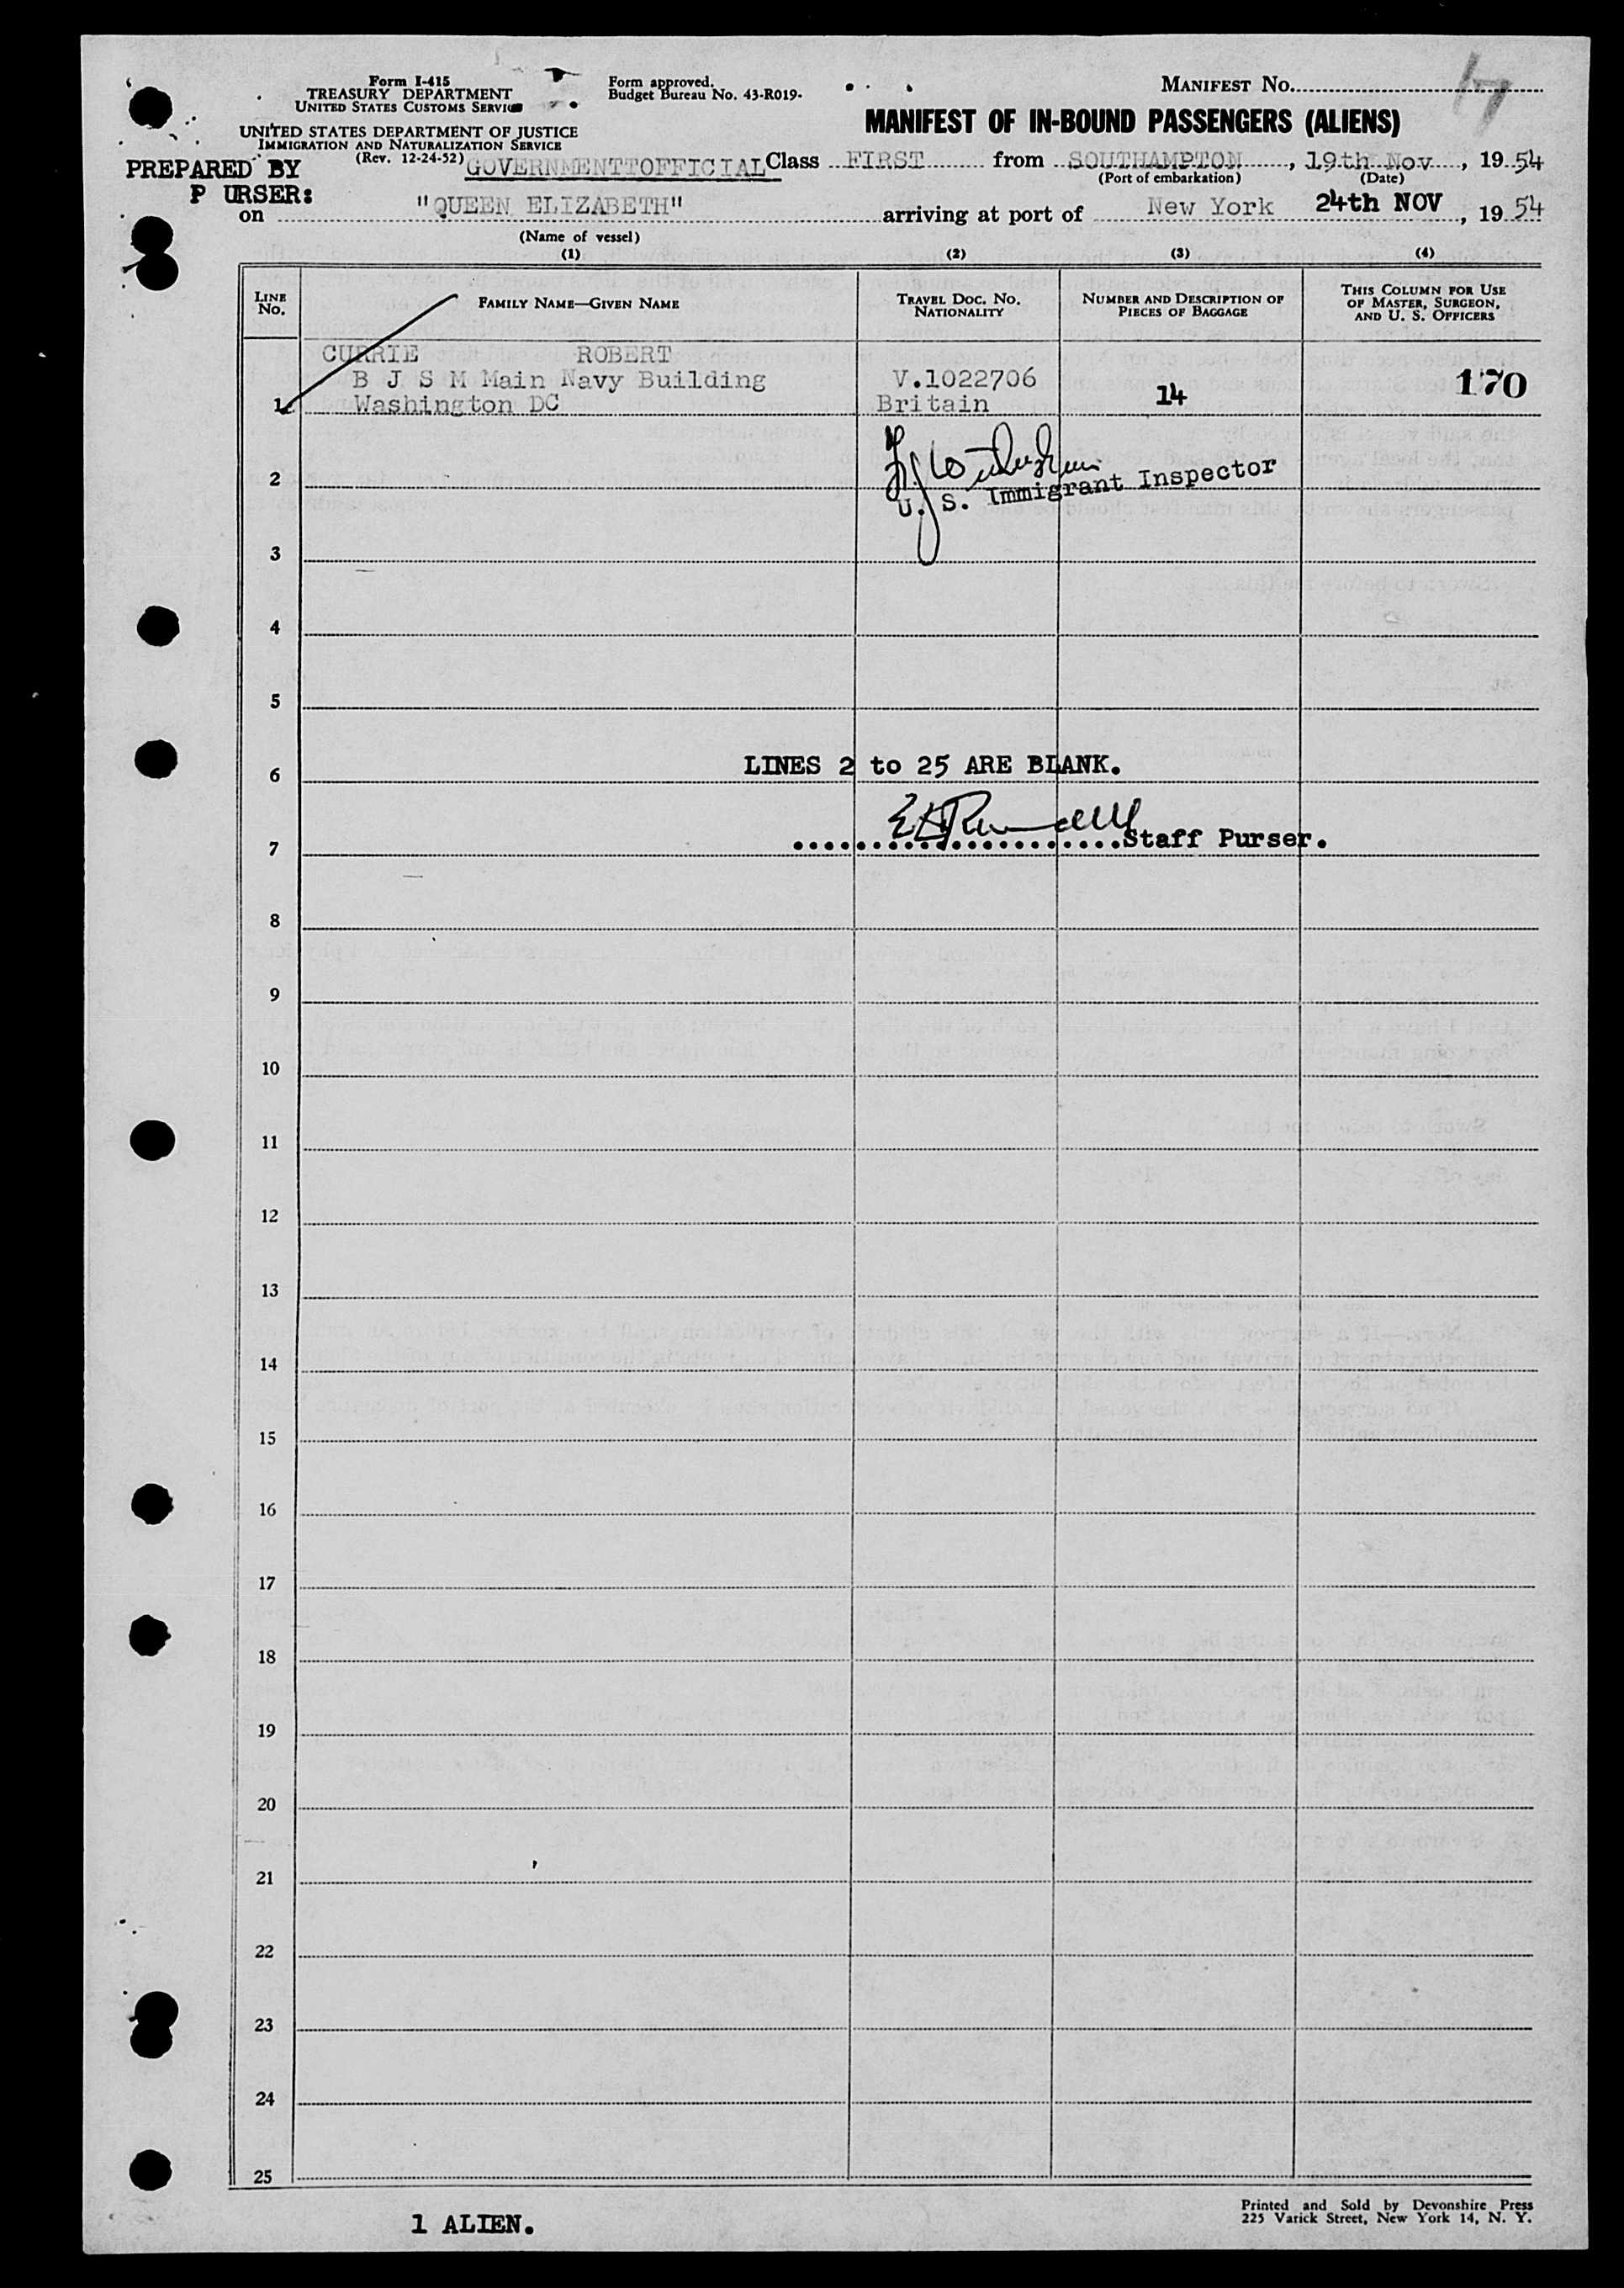 Form I-415
TREASURY DEPARTMENT
UNITED STATES CUSTOMS SERVICE
UNITED STATES DEPARTMENT OF JUSTICE
IMMIGRATION AND NATURALIZATION SERVICE
(Rev. 12-24-52)
Form approved.
Budget Bureau No. 43-R019-
MANIFEST No. 17
MANIFEST OF IN-BOUND PASSENGERS (ALIENS)
PREPARED BY
P URSER:
GOVERNMENTTOFFICIAL Class FIRST from SOUTHAMPTON, 19th Nov, 1954
(Port of embarkation) (Date)
on "QUEEN ELIZABETH" arriving at port of New York 24th NOV, 1954
(Name of vessel)
(1) (2) (3) (4)
LINE No. FAMILY NAME—GIVEN NAME TRAVEL DOC. No. NATIONALITY NUMBER AND DESCRIPTION OF PIECES OF BAGGAGE THIS COLUMN FOR USE OF MASTER, SURGEON, AND U. S. OFFICERS
CURRIE ROBERT
B J S M Main Navy Building V.1022706
1 Washington DC Britain 14 170
2
U. S. Immigrant Inspector
3
4
5
LINES 2 to 25 ARE BLANK.
6
Staff Purser.
7
8
9
10
11
12
13
14
15
16
17
18
19
20
21
22
23
24
25
1 ALIEN.
Printed and Sold by Devonshire Press
225 Varick Street, New York 14, N. Y.